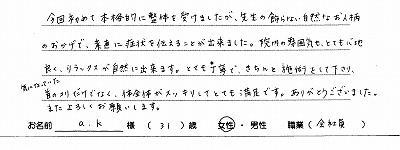 今回初めて本格的に整体を受けましたが、先生の飾らない自然なお人柄
のおかげで、素直に症状を伝えることが出来ました。院内の雰囲気もとても心地
良く、リラックスが自然に出来ます。とても丁寧で、きちんと施術をして下さり、
気になっていた
首のコリだけでなく、体全体がスッキリしてとても満足です。ありがとうございました。
またよろしくお願いします。
お名前 a.k 様 (31)歳 女性・男性 職業(会社員)